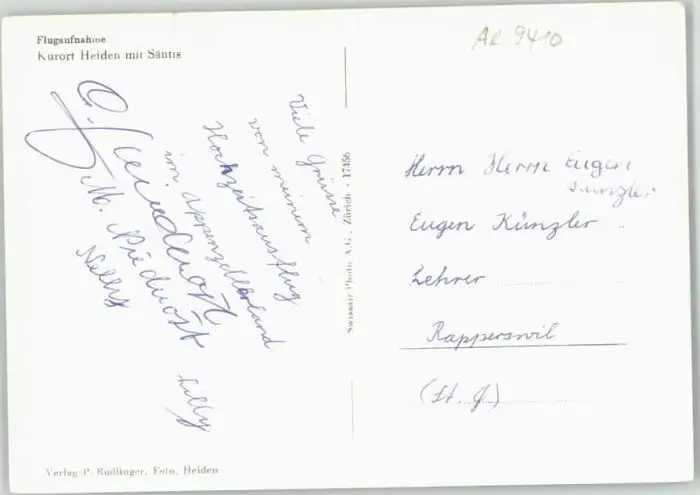 Flugaufnahme
Kurort Heiden mit Säntis
AR 9410
Viele Grüsse
von meinem
Hochzeitsausflug
im Appenzellerland
M. Niederöst
Nelly
Lilly
Swissair-Photo A.G., Zürich · 17456
Herrn Herrn Eugen
Künzler
Eugen Künzler
Lehrer
Rapperswil
(St. G)
Verlag P. Rudlinger, Foto, Heiden